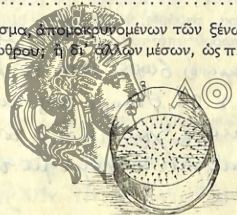 σμα, ἀπομακρυνομένων τῶν ξένω
ώθρου; ἢ δι' ἄλλων μέσων, ὡς π